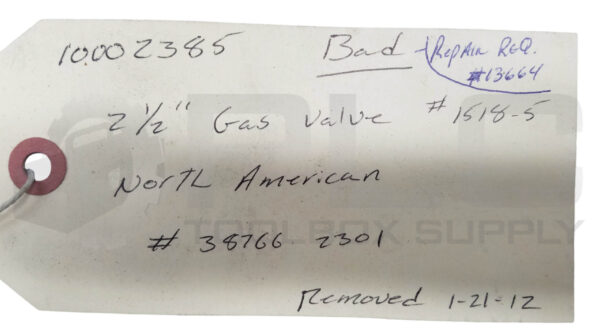 10.002385 Bad - Repair REQ.
#13664
2 1/2" Gas valve #1518-5
North American
# 38766-2301
Removed 1-21-12
PLC
TOOLBOX SUPPLY